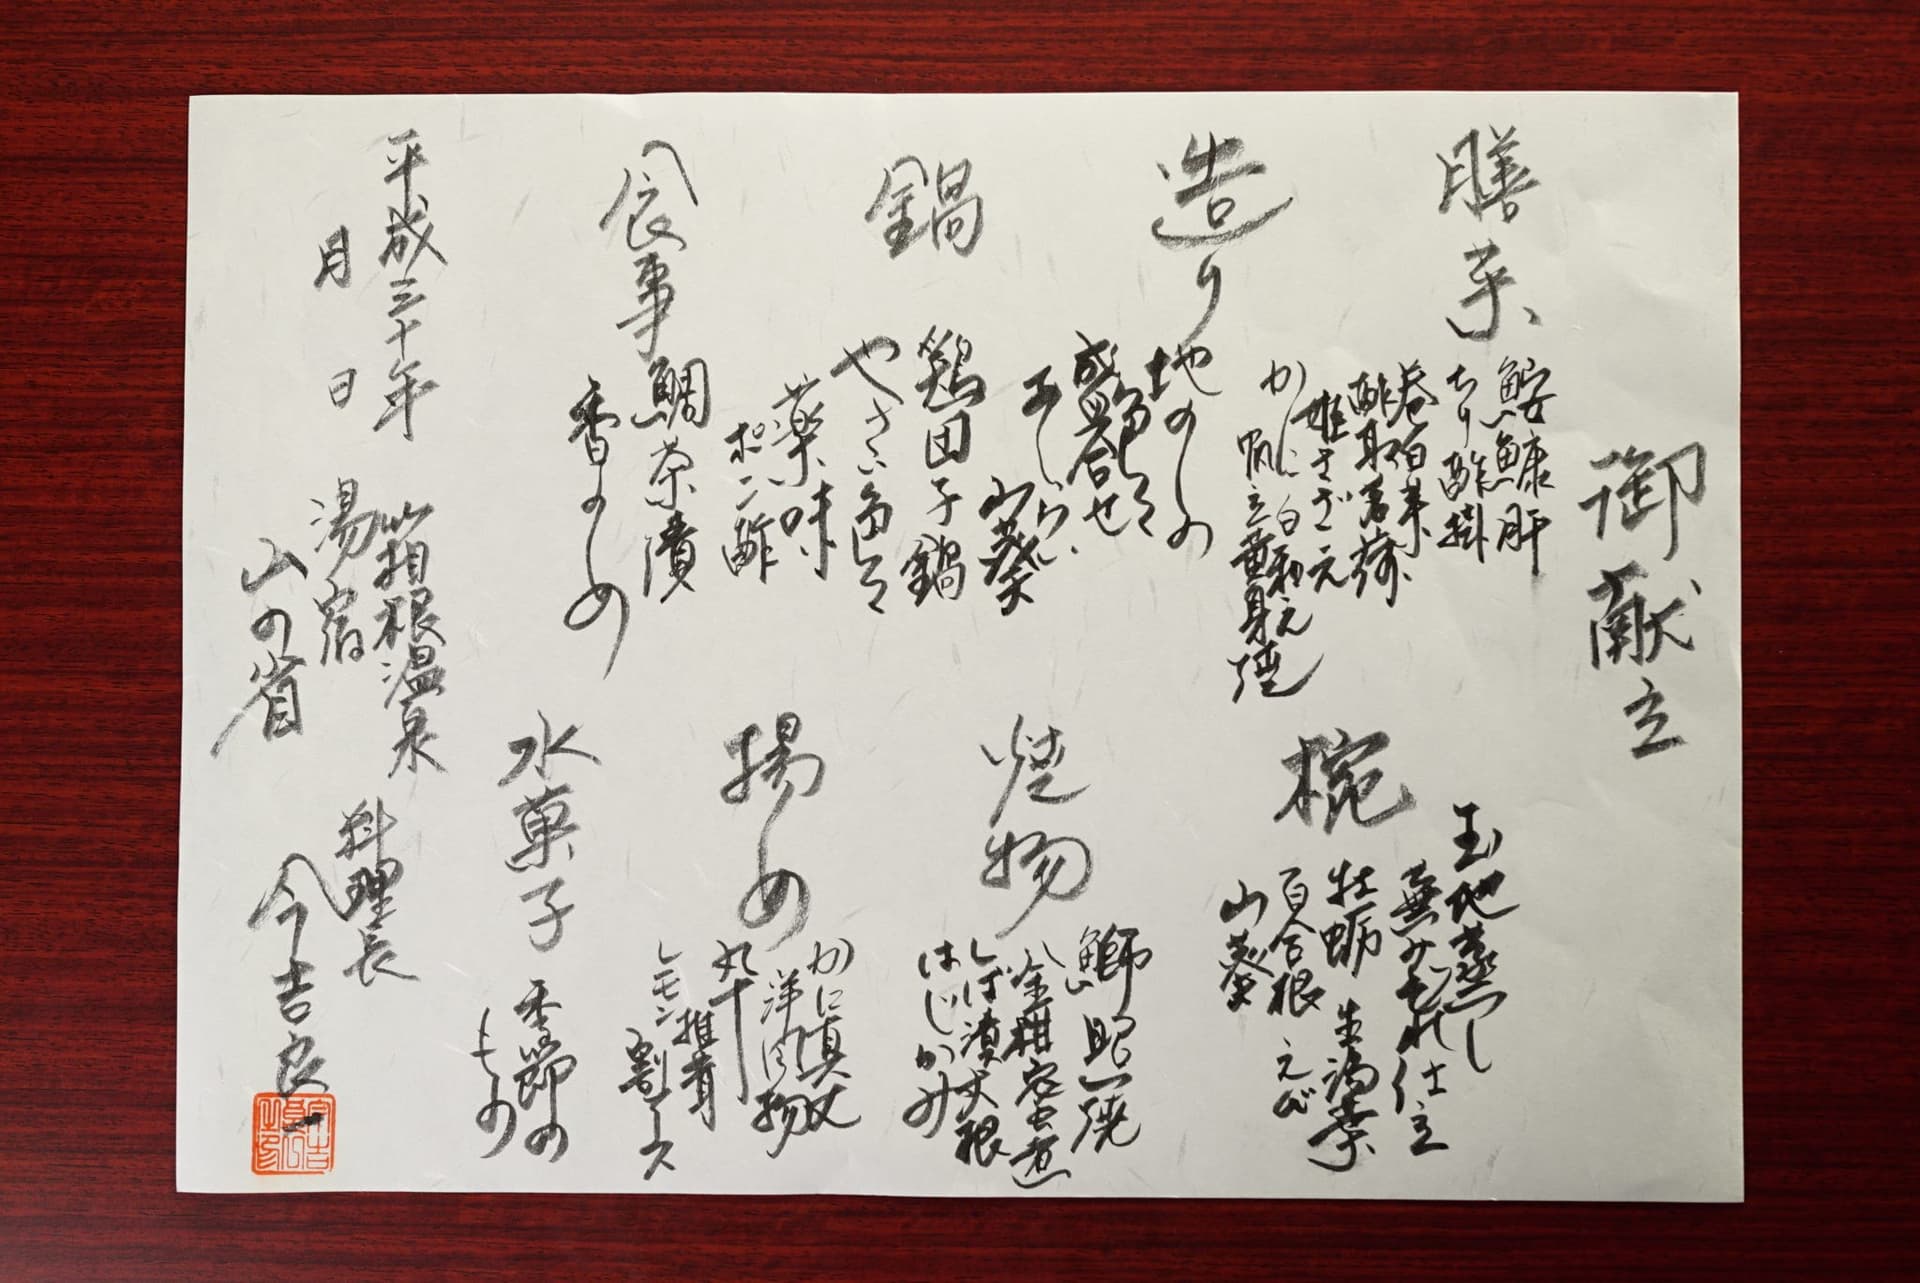 御献立
膳菜
鮟鱇肝
ちり酢掛
巻白菜
酢取茗荷
姫さざえ
かに白和え
帆立黄身焼
椀
玉地蒸し
蕪みぞれ仕立
牡蛎 生湯葉
百合根 えび
山葵
造り
地のもの
色々
盛合せ
あしらい
山葵
焼物
鰤照り焼
金柑蜜煮
しば漬大根
はじかみ
鍋
鶏団子鍋
やさい色々
薬味
ポン酢
揚もの
かに真丈
洋風揚
丸十
椎茸
レモン
割ソース
食事
鯛茶漬
香のもの
水菓子
季節の
もの
平成三十年
月 日
箱根温泉
湯宿
山の省
料理長
今吉良一